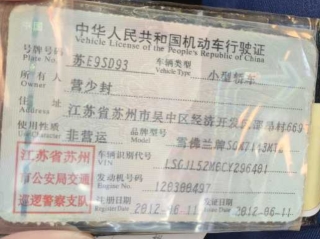 中华人民共和国机动车行驶证
Vehicle License of the People's Republic of China
号牌号码 苏E9SD93 车辆类型 小型轿车
Plate No. Vehicle Type
所有人 营少封
Owner
住址 江苏省苏州市吴中区经济开发区 669
Address
使用性质 非营运 品牌型号 雪佛兰牌
Use Character Model
江苏省苏州 车辆识别代号
VIN LSGJL52M6CY296401
市公安局交通 发动机号码
Engine No. 120300497
巡逻警察支队 注册日期 2012-06-11 发证日期 2012-06-11
Register Date Issue Date